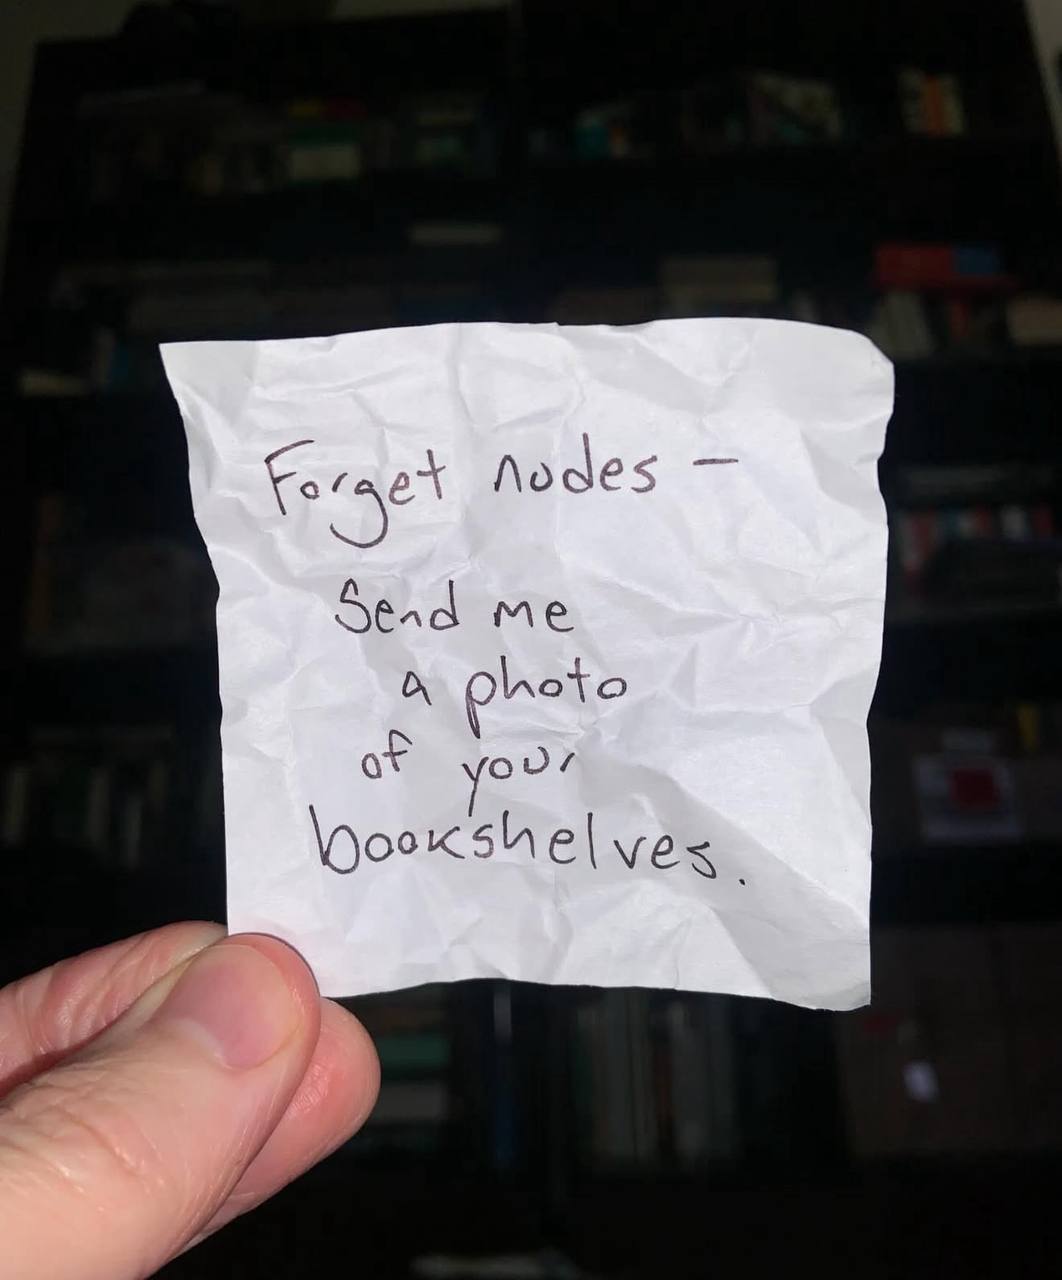 Forget nudes –
Send me
a photo
of your
bookshelves.